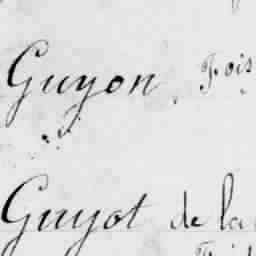 Guyon. Fois
Guyot de la